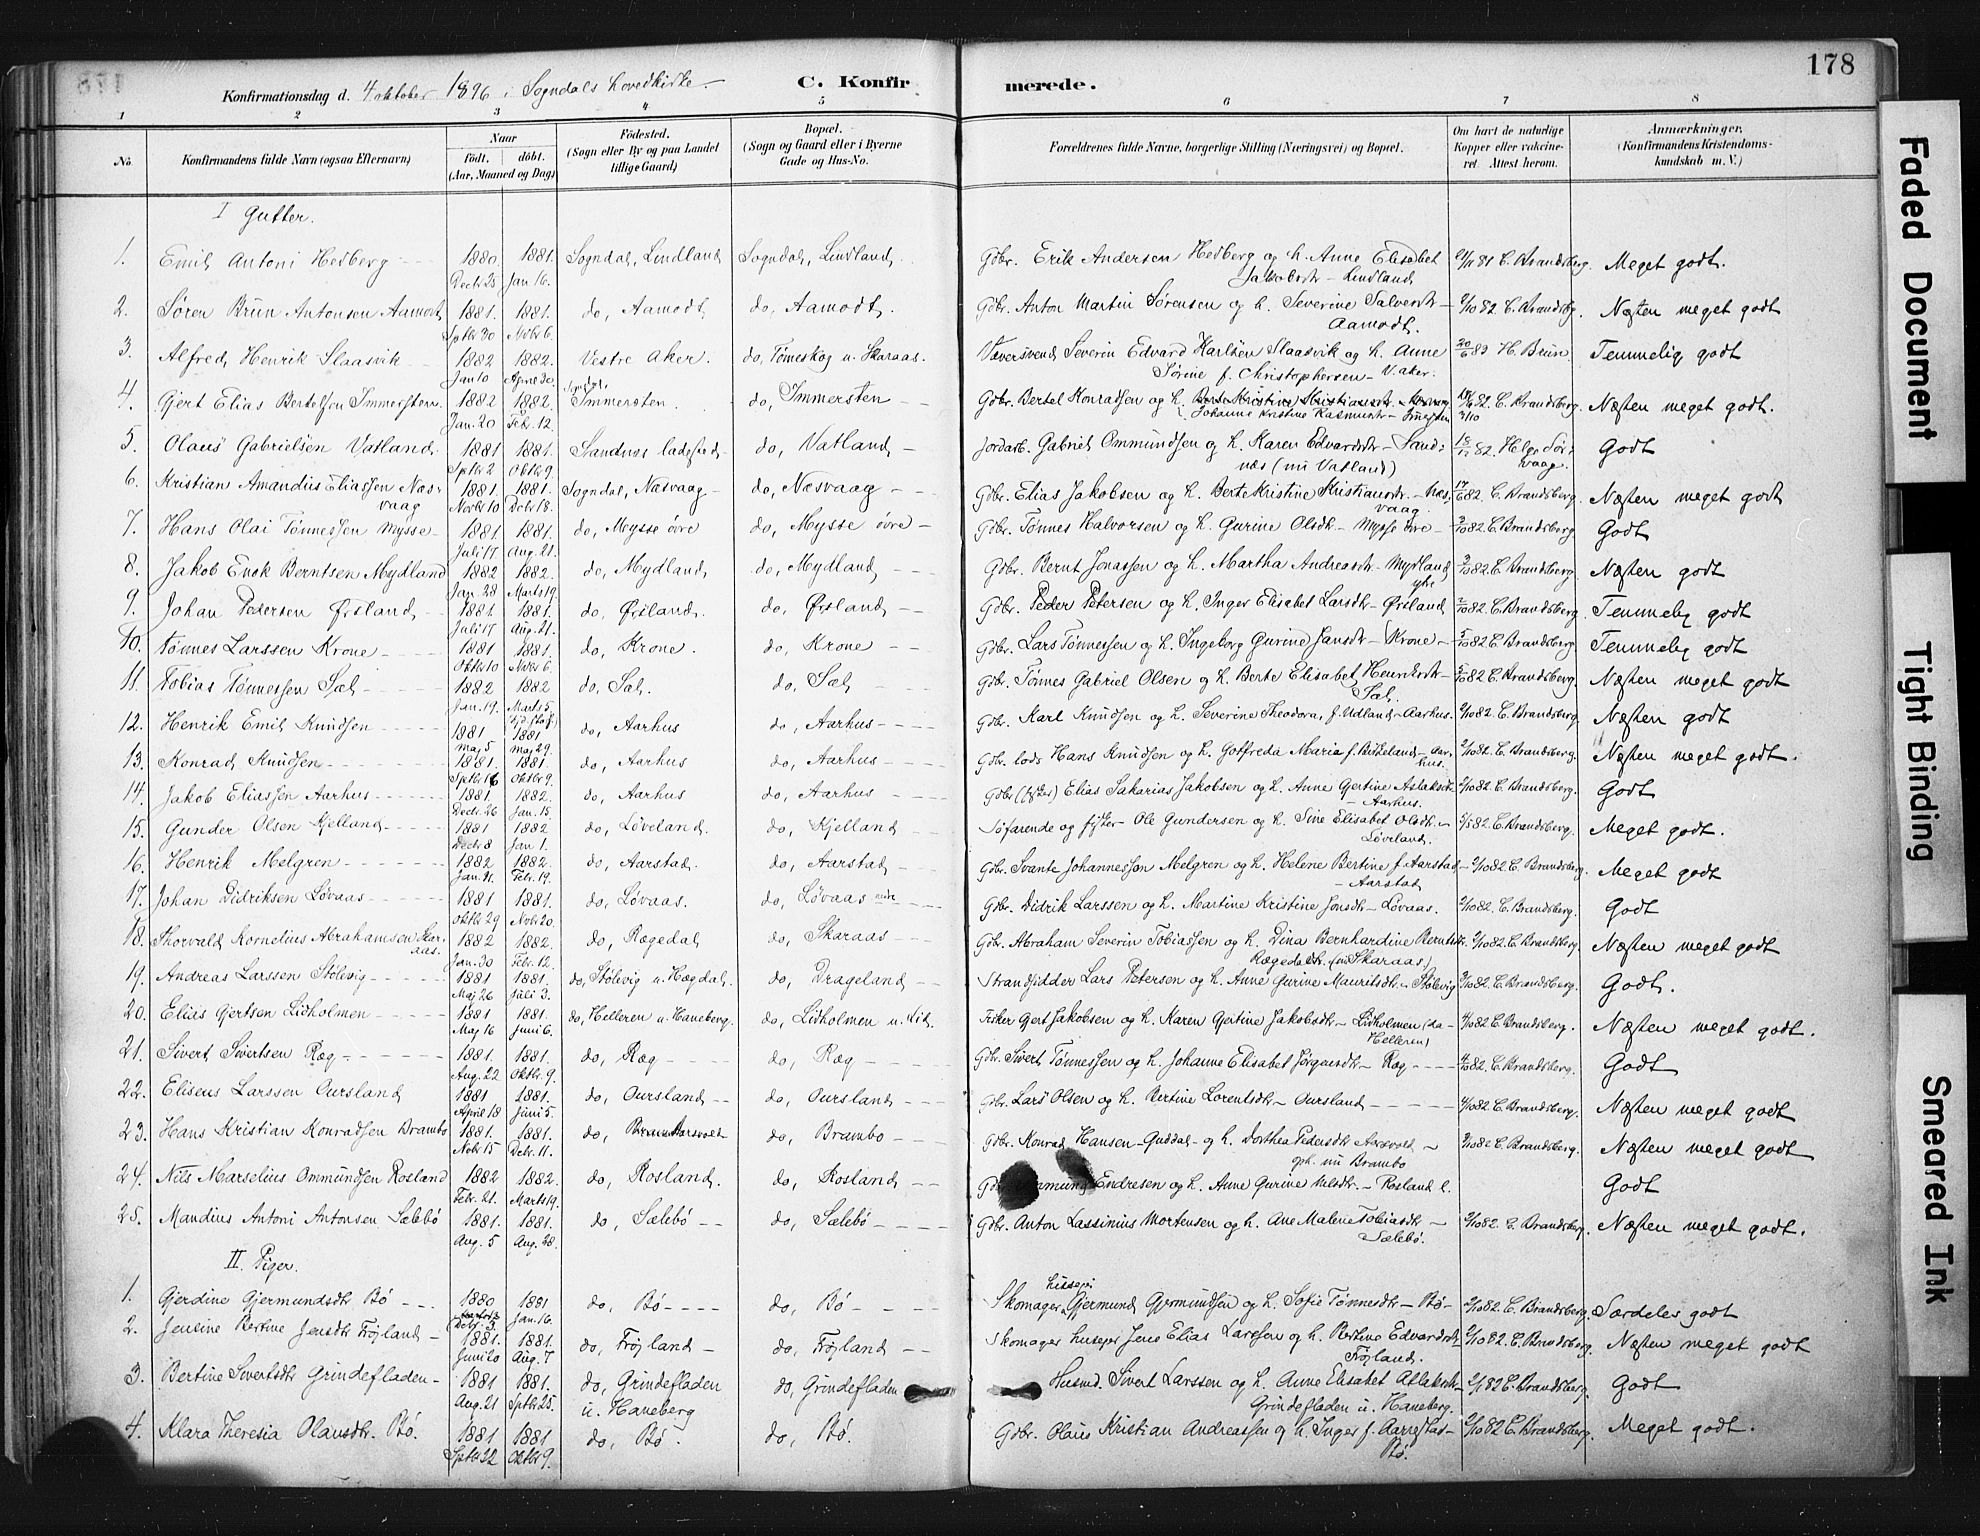 178
Konfirmationsdag d. 4 oktober 1896 i Sogndals hovedkirke.
C. Konfirmerede.
1 2 3 4 5 6 7 8
No.
Konfirmandens fulde Navn (ogsaa Efternavn)
Naar
født. døbt.
(Aar, Maaned og Dag)
Fødested.
(Sogn eller By og paa Landet
tillige Gaard)
Bopæl.
(Sogn og Gaard eller i Byerne
Gade og Hus-No.
Forældrenes fulde Navne, borgerlige Stilling (Næringsvei) og Bopæl.
Om havt de naturlige
Kopper eller vakcine-
ret. Attest herom.
Anmærkninger.
(Konfirmandens Kristendoms-
kundskab m. V.)
I Gutter.
1. Emil Antoni Hedberg 1880 Decbr 25 1881. Jan. 16. Sogndal, Lindland Sogndal, Lindland. Gdbr. Erik Andersen Hedberg og h. Anne Elisabet Jakobsdtr - Lindland 81 C. Brandsberg. Meget godt.
2. Søren Brun Antonsen Aamodt 1881. Sptbr 30 1881. Novbr 6. do, Aamodt do, Aamodt. Gdbr. Anton Martin Sørensen og h. Severine Salvesdtr - Aamodt. 2/10 82. C. Brandsbg. Næsten meget godt
3. Alfred Henrik Slaasvik 1882 Jan 10 1882. April 30. Vestre Aker. do, Tømeskog u. Skaraas. Væversvend Severin Edvard Karlsen Slaasvik og h. Anne Sørine f. Christophersen - V. aker. 20/6 83 H. Brun Temmelig godt
4. Gjert Elias Bertelsen Immersten 1882 Jan. 20 1882. Febr. 12. Sogndal Immersten. do, Immersten Gdbr. Bertel Konradsen og h. Johanne Kristine Rasmusdtr - Immersten 82. C. Brandsberg. Næsten meget godt.
5. Olaus Gabrielsen Vatland 1881 Sptbr 2 1881 Oktbr 9. Sandnes ladested do, Vatland Jordarb. Gabriel Ommundsen og h. Karen Edvardsdtr - Sandnæs (nu Vatland) 82. Helge Sørvaag. Godt
6. Kristian Amandus Eliassen Næsvaag 1881. Novbr 10 1881. Decbr 18. Sogndal, Næsvaag do, Næsvaag Gdbr. Elias Jakobsen og h. Berte Kristine Kristiansdtr. - Næsvaag. 17/6 82. C. Brandsberg. Næsten meget godt
7. Hans Olai Tønnessen Mysse 1881 Juli 17 1881. Aug. 21. do, Mysse øvre do, Mysse øvre Gdbr. Tønnes Halvorsen og h. Gurine Olsdtr - Mysse øvre - 3/10 82. C. Brandsberg. Godt
8. Jakob Enok Berntsen Mydland 1882 Jan. 28 1882. Marts 19. do, Mydland do, Mydland Gdbr. Bernt Jonassen og h. Martha Andreasdtr - Mydland ytre 3/10 82. C. Brandsberg. Næsten godt
9. Johan Pedersen Ørsland 1881. Juli 17 1881. Aug. 21. do, Ørsland. do, Ørsland Gdbr. Peder Petersen og h. Inger Elisabet Larsdtr - Ørsland 2/10 82. C. Brandsberg. Temmelig godt
10. Tønnes Larssen Krone 1881 Oktbr 10 1881 Novbr 6. do, Krone. do, Krone Gdbr. Lars Tønnessen og h. Ingeborg Gurine Jansdtr - Krone - 5/10 82 C. Brandsberg. Temmelig godt
11. Tobias Tønnessen Sæl 1882 Jan. 19. 1882 Marts 5 do, Sæl. do, Sæl Gdbr. Tønnes Gabriel Olsen og h. Berte Elisabet Henriksdtr - Sæl. 5/10 82 C. Brandsberg. Næsten meget godt
12. Henrik Emil Knudsen 1881 Maj 5 1881 Maj 29. do, Aarhus do, Aarhus Gdbr. Karl Knudsen og h. Severine Theodora, f. Udland - Aarhus. 2/10 82. C. Brandsberg. Næsten godt
13. Konrad Knudsen 1881. Sptbr 16 1881. Oktbr 9. do, Aarhus do, Aarhus Gdbr. lods Hans Knudsen og h. Gotfreda Maria f. Birkeland - Aarhus. 2/10 82. C. Brandsberg. Næsten meget godt.
14. Jakob Eliassen Aarhus 1881. Decbr. 26 1882. Jan. 15. do, Aarhus do, Aarhus Gdbr (fisker) Elias Sakarias Jakobsen og h. Anne Gertine Aslaksdtr - Aarhus. 2/10 82. C. Brandsberg. Godt
15. Gunder Olsen Kjelland 1881 Decbr 8 1882 Jan 1. do, Løveland. do, Kjelland Søfarende og fisker Ole Gundersen og h. Sine Elisabet Olsdtr. - Løvland. 82. C. Brandsberg. Meget godt.
16. Henrik Melgren 1882 Jan. 21. 1882. Febr. 19. do, Aarstad. do, Aarstad Gdbr. Svante Johannesson Melgren og h. Helene Bertine f. Aarstad - Aarstad 2/10 82. C. Brandsberg. Meget godt
17. Johan Didriksen Løvaas 1881. Oktbr 29 1881. Novbr 20. do, Løvaas. do, Løvaas nedre Gdbr. Didrik Larssen og h. Martine Kristine Jonsdtr - Løvaas. 2/10 82. C. Brandsberg. Godt
18. Thorvald Kornelius Abrahamsen Skaraas. 1882 Jan. 30 1882. Febr. 12. do, Rægedal do, Skaraas Gdbr. Abraham Severin Tobiassen og h. Dina Bernhardine Berntsdtr. Rægedal (nu Skaraas) 2/10 82. C. Brandsberg. Næsten meget godt
19. Andreas Larssen Stølevig 1881 Maj 26 1881. Juli 3. do, Stølevig u. Rægdal. do, Drageland Strandsidder Lars Petersen og h. Anne Gurine Mauritsdtr. - Stølevig 3/10 82. C. Brandsberg. Godt.
20. Elias Gjertsen Lidholmen 1881 Maj 16 1881. Juni 6. do, Helleren u. Haneberg. do, Lidholmen u. Lid. Fisker Gert Jakobsen og h. Karen Gjertine Jakobsdtr - Lidholmen (da Helleren) 4/10 82. C. Brandsberg. Næsten meget godt.
21. Sivert Sivertsen Ræg 1881. Aug. 22 1881. Oktbr. 9. do, Ræg do, Ræg Gdbr. Sivert Tønnessen og h. Johanne Elisabet Jørgensdtr - Ræg 4/10 82. C. Brandsberg. Godt
22. Eliseus Larssen Oursland 1881 April 18 1881. Juni 5. do, Oursland do, Oursland Gdbr. Lars Olsen og h. Bertine Lorentsdtr - Oursland 4/10 82. C. Brandsberg. Næsten meget godt
23. Hans Kristian Konradsen Brambo 1881. Novbr 15 1881. Decbr. 11. do, Aarsvolt do, Brambo Gdbr. Konrad Hansen - Guddal - og h. Dorthea Pedersdtr Aarsvolt - oph. nu Brambo 3/10 82. C. Brandsberg. Næsten meget godt
24. Nils Marselius Ommundsen Rosland 1882 Febr. 21. 1882. Marts 19. do, Rosland. do, Rosland Endresen og h. Anne Gurine Nilsdtr. - Rosland l. Godt
25. Mandius Antoni Antonsen Sælebø 1881. Aug. 5 1881. Aug. 28. do, Sælebø do, Sælebø Gdbr. Anton Lassinius Mortensen og h. Ane Malene Tobiasdtr - Sælebø. 2/10 82. C. Brandsberg. Næsten meget godt.
II. Piger.
1. Gjerdine Gjermundsdtr Bø 1880 Decbr. 3. 1881 Jan. 16. do, Bø do, Bø Skomager, husejer Gjermund Gjermundsen og h. Sofie Tønnesdtr - Bø - 2/10 82. C. Brandsberg. Særdeles godt
2. Jensine Bertine Jensdtr Frøjland 1881. Juni 20 1881. Aug. 7 do, Frøjland do, Frøjland Skomager husejer Jens Elias Larssen og h. Bertine Edvardsdtr Frøjland. 2/10 82. C. Brandsberg. Næsten meget godt
3. Bertine Sivertsdtr Grindefladen 1881 Aug. 21 1881. Sptbr 25. do, Grindefladen u. Haneberg do, Grindefladen Husmd. Sivert Larssen og h. Anne Elisabet Aslaksdtr - Grindefladen u. Haneberg. 82 C. Brandsberg. Godt
4. Klara Theresia Olausdtr. Bø. 1881 Sptbr 22 1881 Oktbr 9. do, Bø. do, Bø. Gdbr. Olaus Kristian Andreassen og h. Inger f. Aarrestad - Bø. 2/10 82 C. Brandsberg. Meget godt.
Faded Document
Tight Binding
Smeared Ink